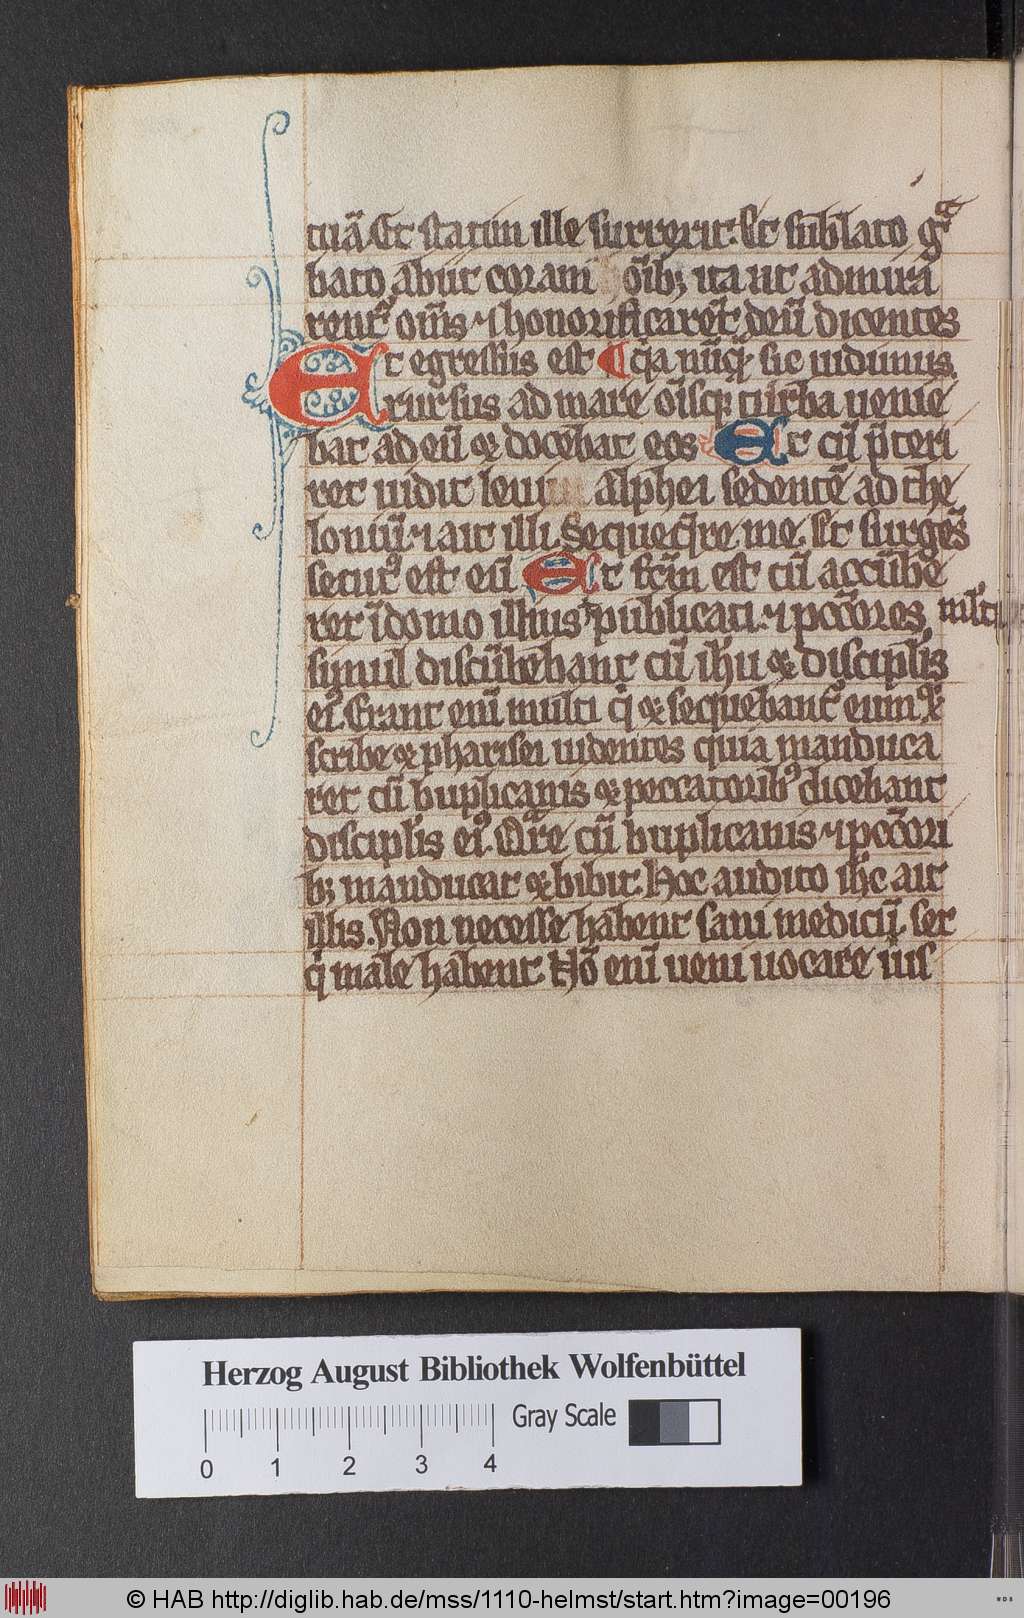 tuā. Et statim ille surrexit. Et sub̄lato gͣ
bato abiit coram oīb; ita ut admirā
rent᷑ om̄s ⁊ honorificarēt deū dicentes
Et egressus est ¶ qͥa nūqͣ sic uidimus.
rursus ad mare oīsqꝫ turba uenie
bat ad eū ⁊ docēbat eos Et cū p̄teri
ret uidit leui alphei sedentē ad the
loniū ⁊ ait illi. Sequere me. Et surgēs
secutꝰ est eū Et fc̄m est cū accūbe
ret ī domo illius publicati ⁊ pccōres
ml̓ti
simul discūbebant cū ihū ⁊ discipl̓is
eiꝰ. Erant enī multi qͥ ⁊ sequebant᷑ eum ⁊
scribe ⁊ pharisei uidentes quia manduca
ret cū buplicanis ⁊ peccatoribꝰ dicebant
discipl̓is eiꝰ. Qͣre cū buplicanis ⁊ pccōri
b; manducat ⁊ bibit. Hoc audito ihc̄ ait
illis. Non necesse habent sani medicū. set
qͥ male habent. Nō enī ueni uocare ius
Herzog August Bibliothek Wolfenbüttel
0 1 2 3 4 Gray Scale
© HAB http://diglib.hab.de/mss/1110-helmst/start.htm?image=00196